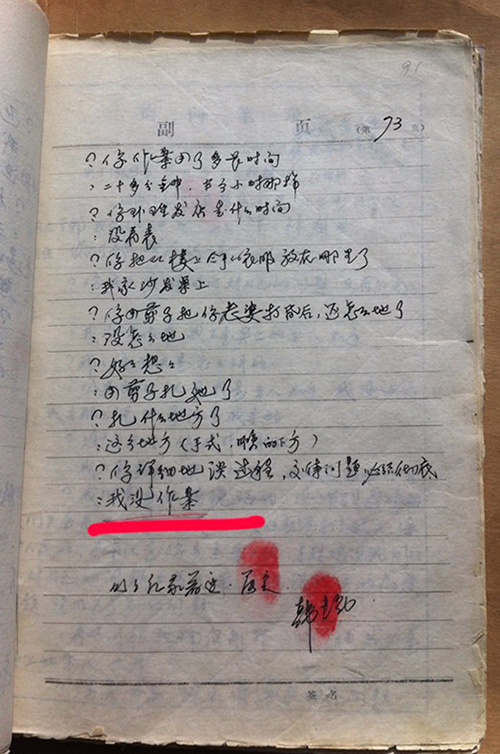 91
副 页 (第 73 页)
? 你作案用了多长时间
: 二十多分钟, 半个小时那样
? 你到现场是什么时间
: 没看表
? 你把从楼上拿的衣服放在哪里了
: 我家沙发上
? 你用剪子把你老婆打昏后, 还怎么地了
: 没怎么地
? 好好想想
: 用剪子扎她了
? 扎什么地方了
: 这个地方 (手式, 喉的下方)
? 你详细地谈过程, 交待问题必须彻底
: 我没作案
以上记录看过, 属实
韩
签 名